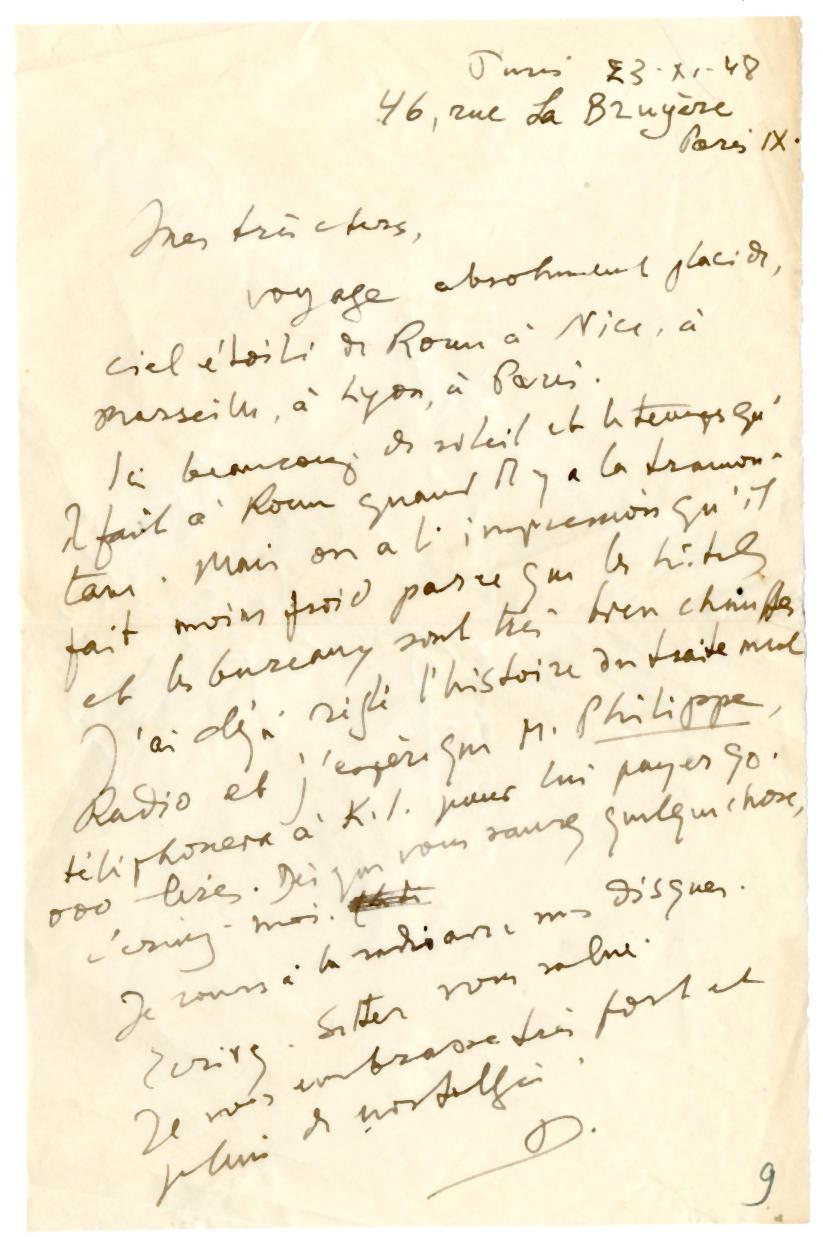 23-XI-48
46, rue La Bruyère
Paris IX.
Mes très chers,
voyage absolument placide,
ciel étoilé de Rome à Nice, à
Marseille, à Lyon, à Paris.
Ici beaucoup de soleil et le temps qu'
il fait à Rome quand il y a la tramon-
tane. Mais on a l'impression qu'il
fait moins froid parce que les hôtels
et les bureaux sont très bien chauffés
J'ai déjà réglé l'histoire du traitement
Radio et j'espère que M. Philippe,
téléphonera à K.I. pour lui payer 90.
000 lires. Dès que vous saurez quelque chose,
écrivez-moi.
Je cours à la radio avec mes disques.
Écrivez. Sitter vous salue.
Je vous embrasse très fort et
plein de nostalgie.
D.
9